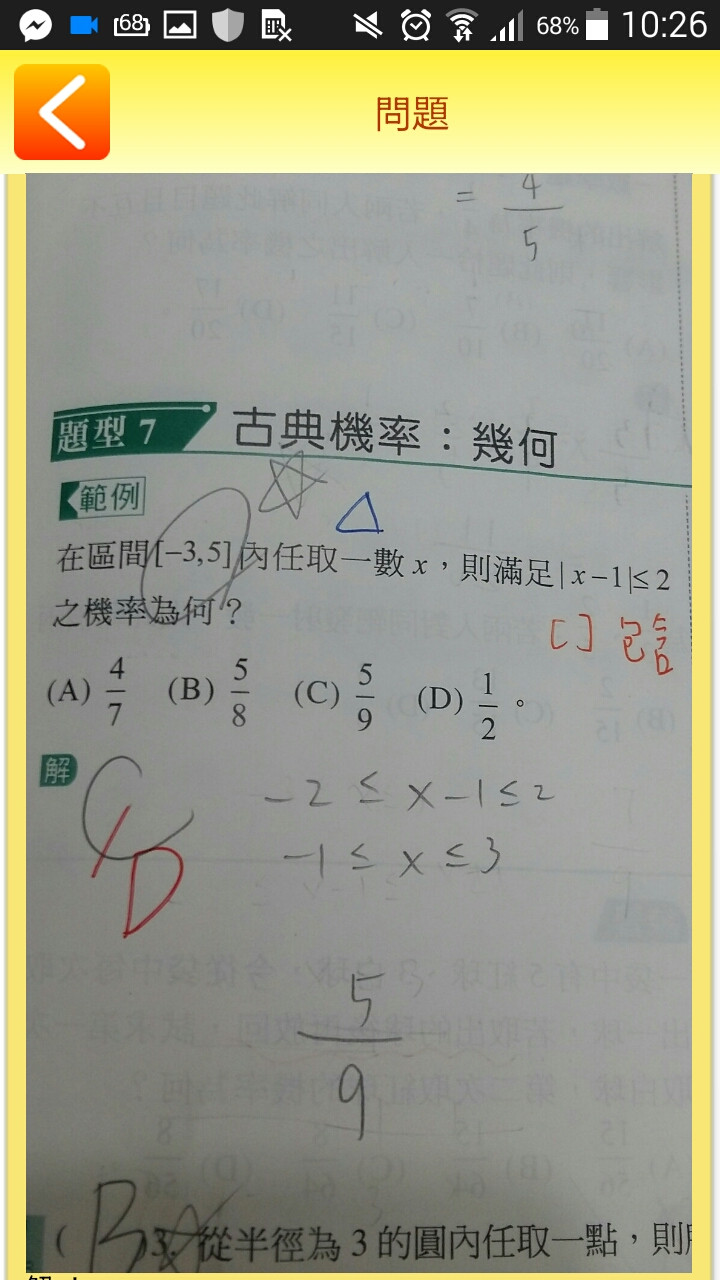 68
68% 10:26
問題
= 4/5
題型 7 古典機率：幾何
範例
在區間[−3,5]內任取一數 x，則滿足|x−1|≤2
之機率為何？
[ ] 包含
(A) 4/7 (B) 5/8 (C) 5/9 (D) 1/2。
解
C
D
−2 ≤ x−1 ≤ 2
−1 ≤ x ≤ 3
5/9
( B )3. 從半徑為 3 的圓內任取一點，則